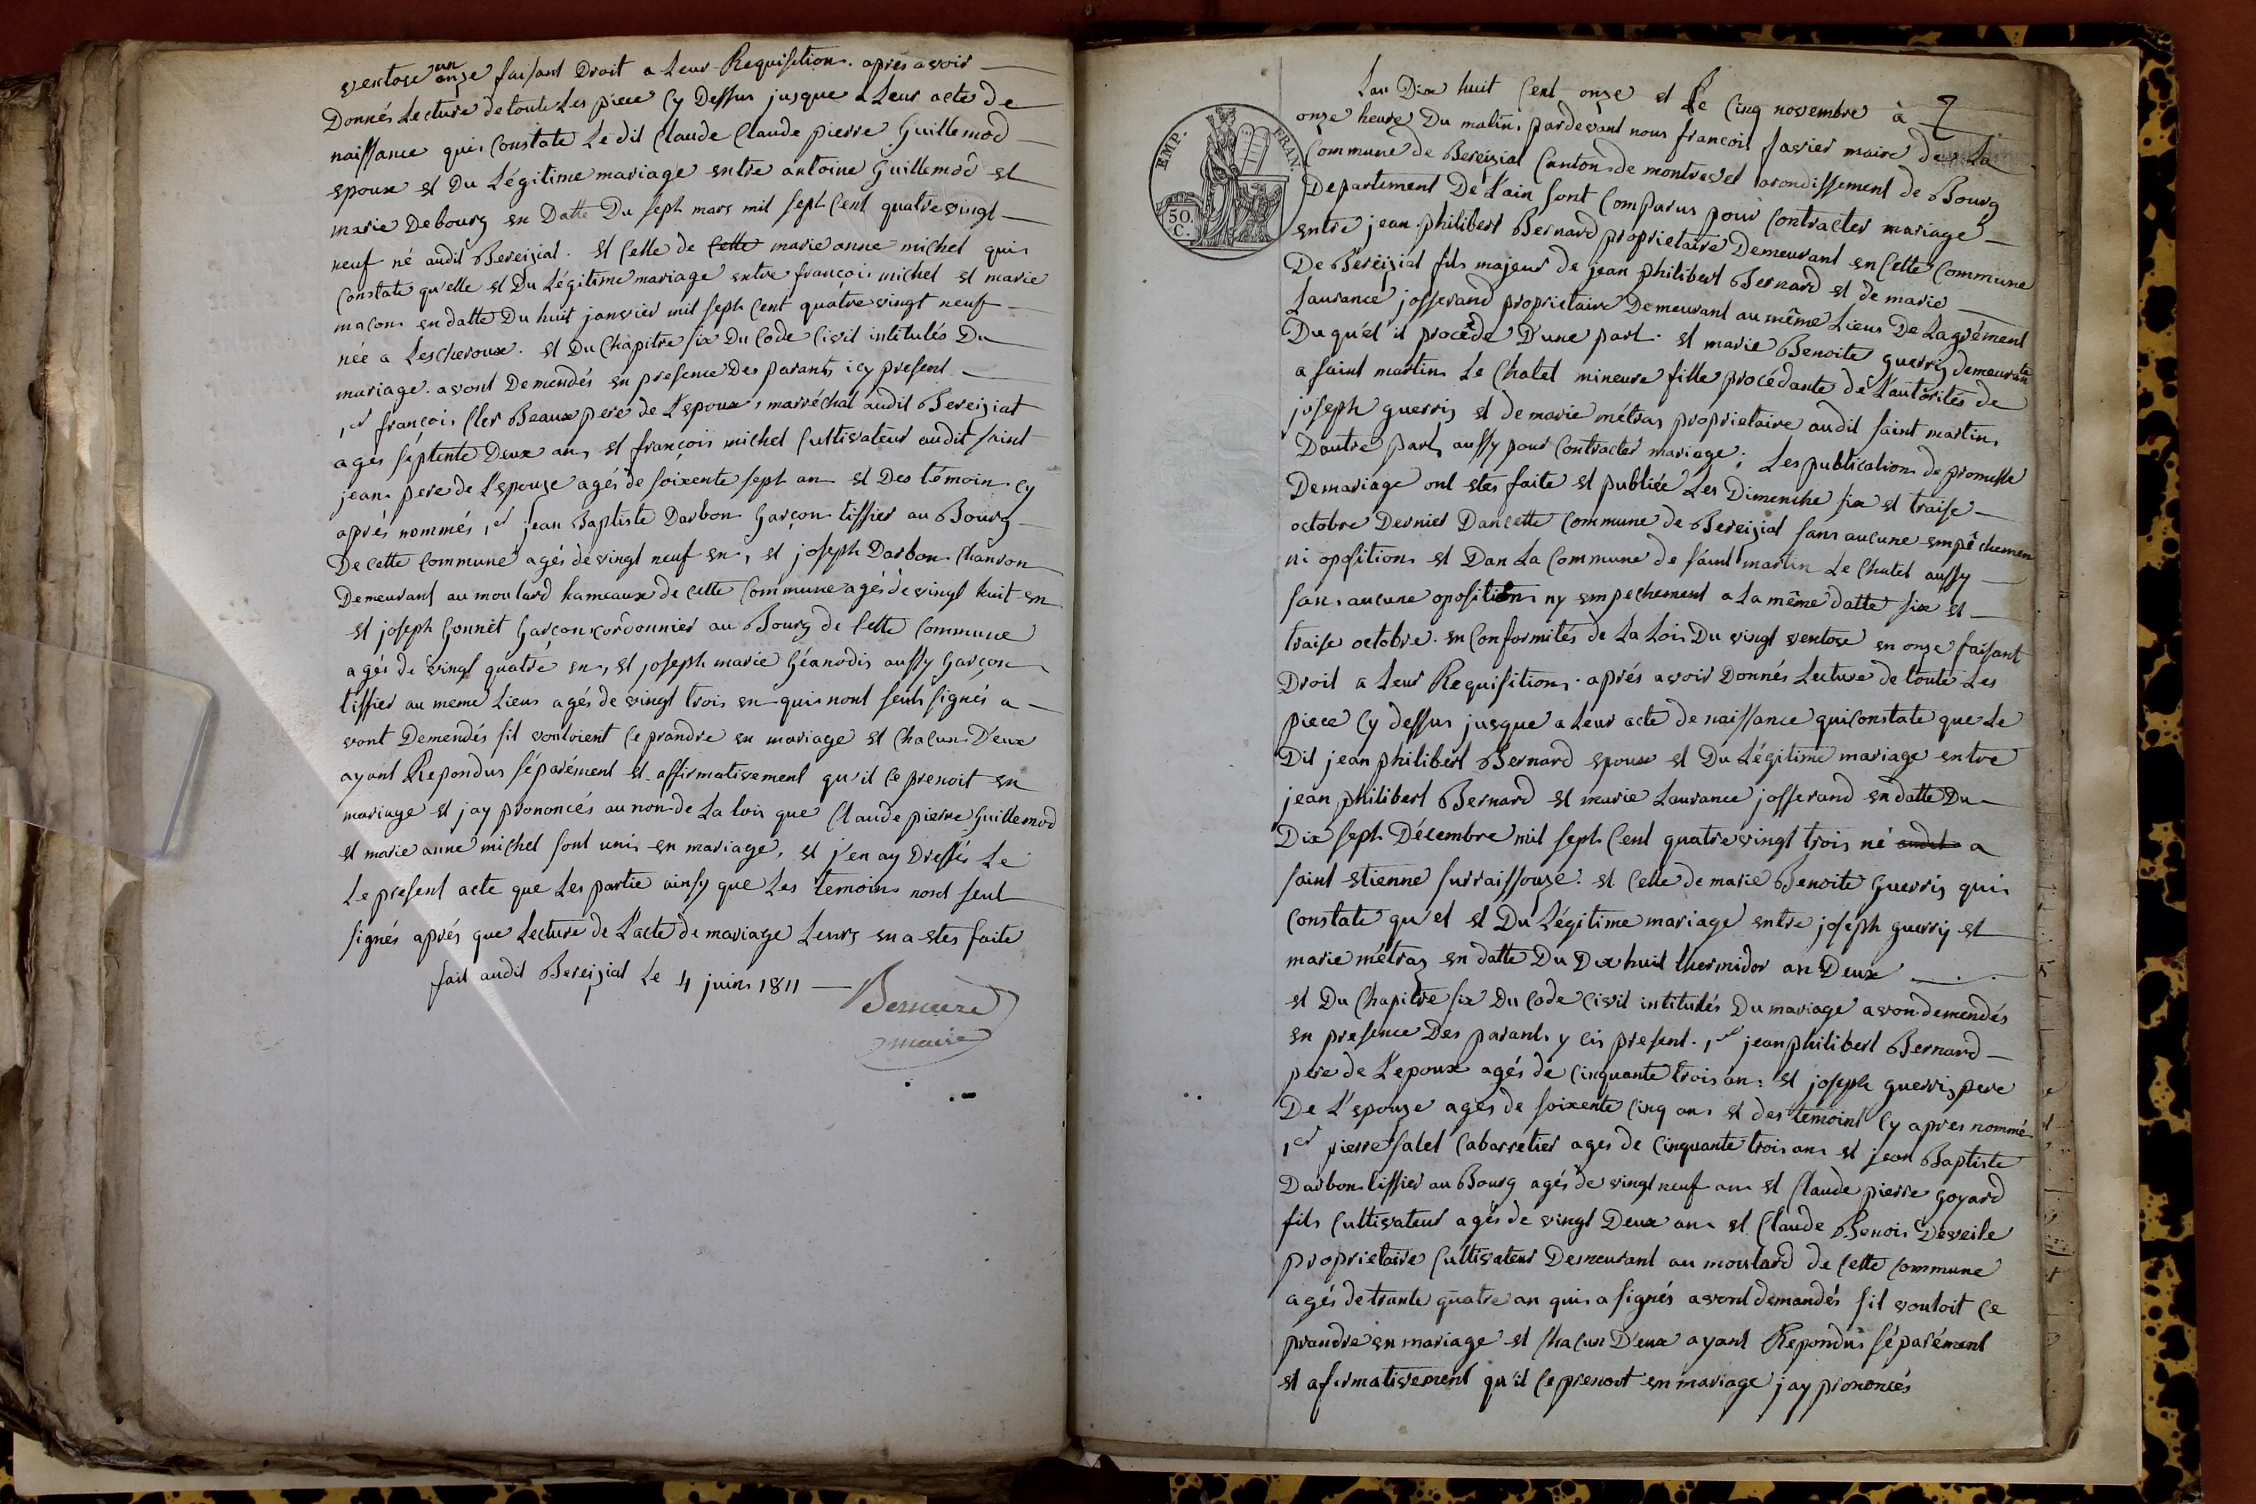 ventose an onze faisant Droit a Leur Requisition. aprés avoir
Donnés Lecture de toute Les piece Cy Dessus jusque a Leur acte de
naissance qui Constate Le dit Claude Claude pierre Guillemod
epoux et Du Légitime mariage entre antoine Guillemod et
marie Debourg en Datte Du sept mars mil sept Cent quatre vingt
neuf né audit Bereiziat. et Celle de Cette marie anne michel qui
Constate qu'elle et Du Légitime mariage entre françois michel et marie
macon en datte Du huit janvier mil sept Cent quatre vingt neuf
née a Lescheroux. et Du Chapitre six Du Code Civil intitulés Du
mariage. avont Demendés en presence Des parants icy present
1er françois Cler Beaux pere de L'epoux, marréchal audit Bereiziat
agés séptente Deux ans et françois michel Cultivateur audit saint
jean pere de L'epouze agés de soixente sept an et Des témoin Cy
aprés nommés 1er jean Baptiste Darbon Garçon tissier au Bourg
De cette Commune agés de vingt neuf en, et joseph Darbon Chanron
Demeurant au moutard hameaux de cette Commune agés de vingt huit en
et joseph Gonnet Garçon cordonnier au Bourg de Cette Commune
agés de vingt quatre en, et joseph marie Géanodis aussy Garçon
tissier au meme Lieus agés de vingt trois en qui nont seuls signés a
vont Demendés sil vouloient Ce prandre en mariage et Chacun D'eux
ayant Repondus séparément et affirmativement qu'il Ce prenoit en
mariage et jay prononcés au non de La loix que Claude pierre Guillemod
et marie anne michel sont unis en mariage, et j'en ay Dressés Le
Le present acte que Les partie ainsy que Les temoins nont seul
signés aprés que Lecture de L'acte de mariage Leurs en a etes faite
fait audit Bereiziat Le 4 juin 1811
maire
EMP. FRAN.
50. C.
Lan Dix huit Cent onze et Le Cinq novembre à
onze heure Du matin pardevant nous francois favier maire de La
Commune de Bereiziat Canton de montrevel arondissement de Bourg
Departement De L'ain sont Comparus pour Contracter mariage
entre jean philibert Bernard proprietaire Demeurant en Cette Commune
De Bereiziat fils majeur de jean philibert Bernard et de marie
Laurance josserand proprietaire Demeurant au même Lieus De Lagrément
Duquel il procéde D'une part. et marie Benoite guerriz demeurante
a saint martin Le Chatel mineure fille procédante de L'autorités de
joseph guerriz et de marie métraz proprietaire audit saint martin
Dautre part aussy pour Contracter mariage; Les publication de promesse
De mariage ont etes faite et publiée Les Dimenche six et traise
octobre Dernier Dan cette Commune de Bereiziat sans aucune empêchemen
ni oposition et Dan La Commune de saint martin Le Chatel aussy
san aucune oposition ny empechement a La même datte six et
traise octobre. en Conformités de La Loix Du vingt ventose en onze faisant
Droit a Leur Requisition. aprés avoir Donnés Lecture de toute Les
piece Cy dessus jusque a Leur acte de naissance qui Constate que Le
Dit jean philibert Bernard epoux et Du Légitime mariage entre
jean philibert Bernard et marie Laurance josserand en datte Du
Dix sept Décembre mil sept Cent quatre vingt trois né audit a
saint etienne surraissouze. et Celle de marie Benoite guerriz qui
Constate qu'el et Du Légitime mariage entre joseph guerriz et
marie métraz en datte Du Dix huit thermidor an Deux
et Du Chapitre six Du Code Civil intitulés Du mariage avon demendés
en presence Des parant y cis present. 1er jean philibert Bernard
pere de L'epoux agés de Cinquante trois an. et joseph guerriz pere
De L'epouze ages de soixente Cinq ans et des temoint Cy apres nommé
1er pierre salet Cabarretier ages de Cinquante trois ans et jean Baptiste
Darbon tissier au Bourg agés de vingt neuf ans et Claude pierre goyard
fils Cultivateur agés de vingt Deux ans et Claude Benois Deveile
proprietaire Cultivateur Demeurant au moutard de Cette Commune
agés de trante quatre an qui a signés avont demandés sil vouloit Ce
prandre en mariage et Chacun D'eux ayant Repondus séparément
et afirmativement qu'il Ce prenoit en mariage jay prononcés